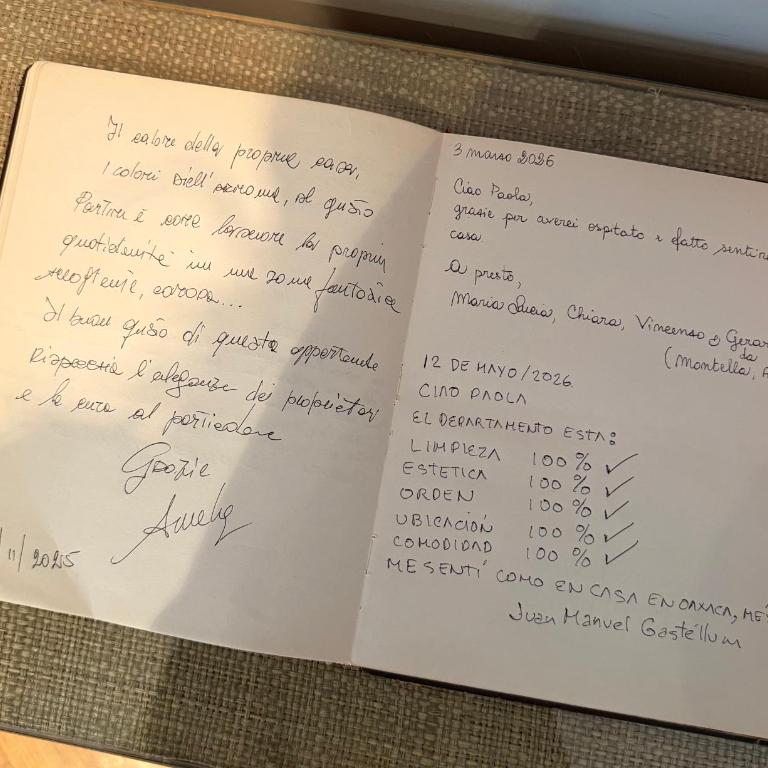 Il calore della propria casa,
I colori dell'autunno, al gusto
Partire è come lasciare la propria
quotidianità in una zona fantastica
accogliente, curata...
Il buon gusto di questo appartamento
Rispecchia l'eleganza dei proprietari
e la cura al particolare
Grazie
11/2025
3 marzo 2026
Ciao Paola,
grazie per averci ospitato e fatto sentire
casa.
A presto,
Maria Lucia, Chiara, Vincenzo e
da
(Montella,
12 DE MAYO/2026.
CIAO PAOLA
EL DEPARTAMENTO ESTA:
LIMPIEZA 100 % ✓
ESTETICA 100 % ✓
ORDEN 100 % ✓
UBICACIÓN 100 % ✓
COMODIDAD 100 % ✓
ME SENTÍ COMO EN CASA EN OAXACA,
Juan Manuel Gastéllum